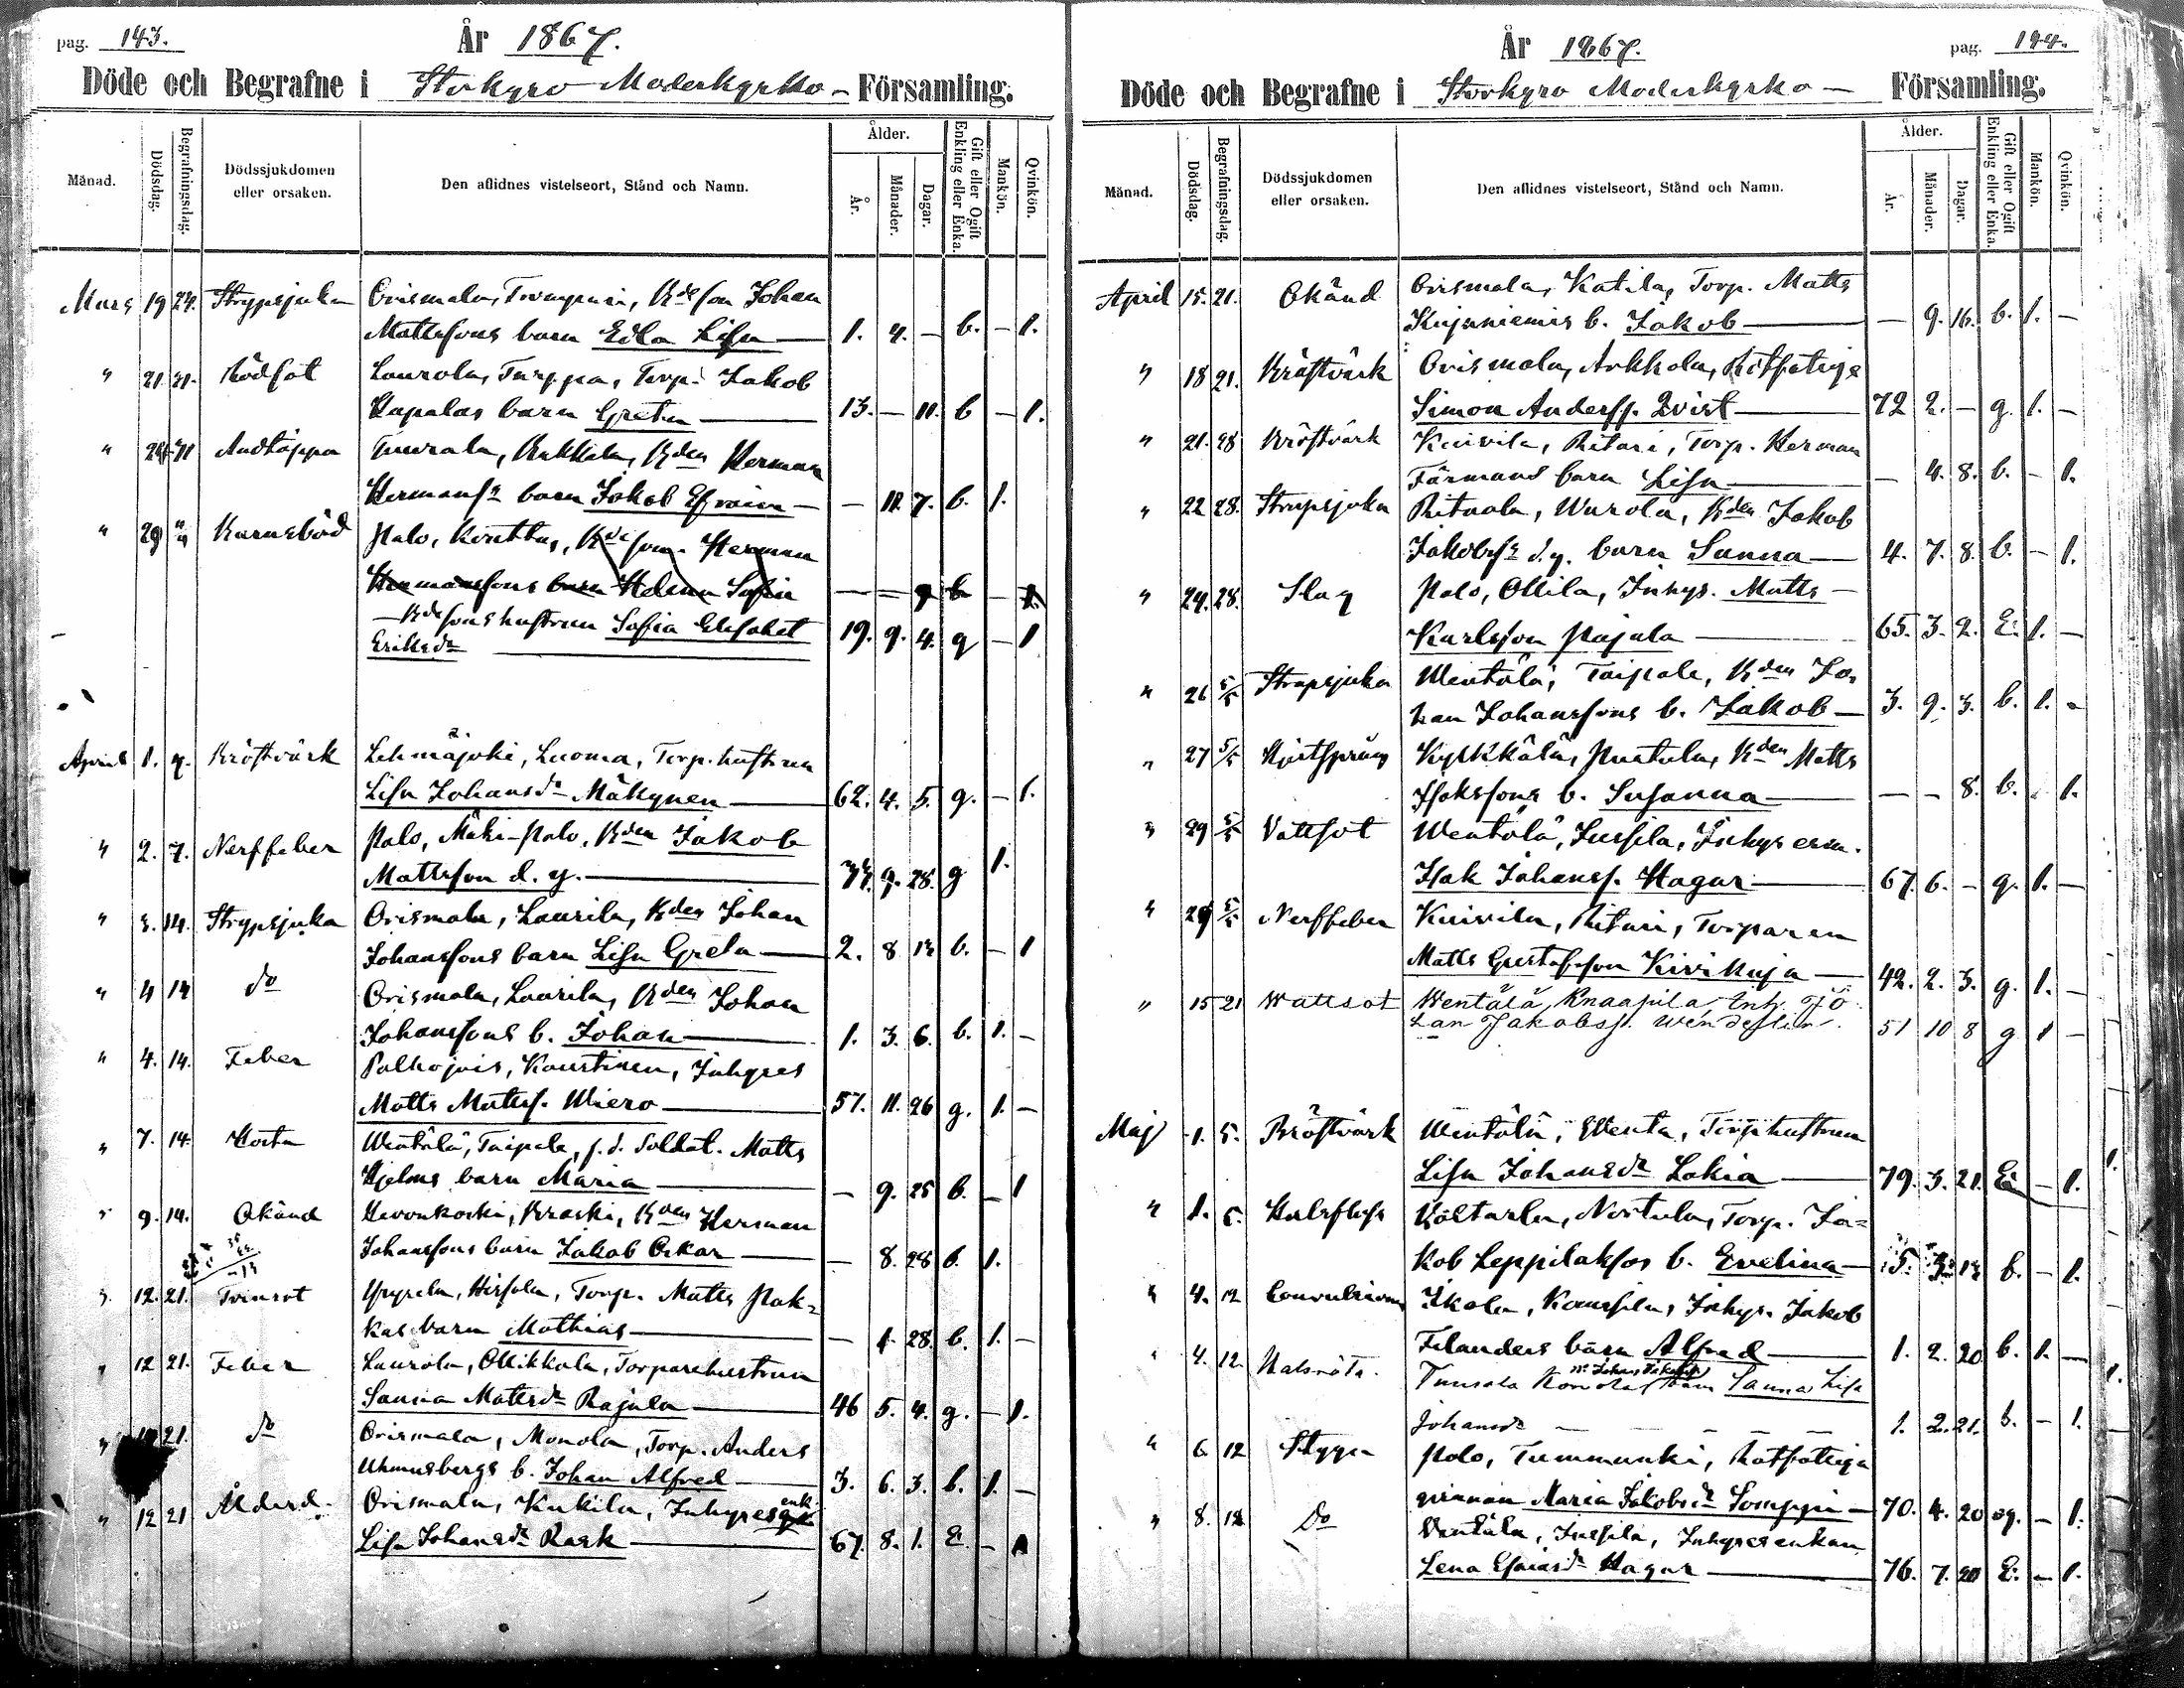 pag. 143.
År 1867.
Döde och Begrafne i Storkyro Moderkyrko- Församling.
Månad.
Dödsdag.
Begrafningsdag.
Dödssjukdomen
eller orsaken.
Den aflidnes vistelseort, Stånd och Namn.
Ålder.
År.
Månader.
Dagar.
Gift eller Ogift
Enkling eller Enka.
Mankön.
Qvinkön.
Mars 19 24. Strypsjukan Orismala, Bdeson Johan
Mattssons barn Edla Lisa 1. 4. — b. — 1.
" 21. 31. Rödsot Laurola, Turppa, Torp. Jakob
barn Greta 13. — 11. b — 1.
" 24 31 Andtäppa Bden Herman
Hermanss barn Jakob Efraim — 11. 7. b. 1.
" 29 " Barnsbörd Palo, Bdeson Herman
Hermanssons barn Helena Sofia — — 9 b — 1.
— Bdesons hustrun Sofia Elisabet 19. 9. 4. g — 1
Eriksdr
April 1. 7. Bröstvärk Lehmäjoki, Luoma, Torp. hustrun
Lisa Johansdr Mäkynen 62. 4. 5. g. — 1.
" 2. 7. Nerffeber Palo, Mäki-Palo, Bden Jakob
Mattsson d. y. 9. 28. g 1.
" 3. 14. Strypsjuka Orismala, Laurila, Bden Johan
Johanssons barn Lisa Greta 2. 8 13 b. — 1
" 4 14 do Orismala, Laurila, Bden Johan
Johanssons b. Johan 1. 3. 6. b. 1. —
" 4. 14. Feber Palhojais, Kaustinen, Inhyses
Matts Mattss. Wiero 57. 11. 26 g. 1. —
" 7. 14. Hosta Wentälä, Taipale, f. d. Soldat. Matts
Hjelms barn Maria — 9. 25 b. — 1
" 9. 14. Okänd Hevonkoski, Bden Herman
Johanssons barn Jakob Oskar — 8. 28 b. 1.
" 12. 21. Tvinsot Ypyrelä, Torp. Matts
barn Mathias — 1 28. b. 1. —
" 12 21. Feber Laurola, Ollikkala, Torparehustrun
Sanna Mattsdr Rajala 46 5. 4. g. — 1.
" 21. do Orismala, Monola, Torp. Anders
b. Johan Alfred 3. 6. 3. b. 1. —
" 12 21 Ålderd. Orismala, Kukila, Inhyses enk.
Lisa Johansdr Rask 67. 8. 1. E — 1
År 1867.
pag. 144.
Döde och Begrafne i Storkyro Moderkyrko — Församling.
Månad.
Dödsdag.
Begrafningsdag.
Dödssjukdomen
eller orsaken.
Den aflidnes vistelseort, Stånd och Namn.
Ålder.
År.
Månader.
Dagar.
Gift eller Ogift
Enkling eller Enka.
Mankön.
Qvinkön.
April 15. 21. Okänd Orismala, Katila, Torp. Matts
Kujaniemis b. Jakob — 9. 16. b. 1. —
" 18 21. Bröstvärk Orismala, Arkkola, Rotfatige
Simon Anderss. Qvist 72 2. — g. 1. —
" 21. 28 Bröstvärk Kuivila, Ritari, Torp. Herman
Färmans barn Lisa — 4. 8. b. — 1.
" 22 28. Strypsjuka Ritaala, Wurola, Bden Jakob
Jakobss d. y. barn Sanna 4. 7. 8. b. — 1.
" 24. 28. Slag Palo, Ollila, Inhys. Matts
Karlsson Pajula 65. 3. 2. E. 1. —
" 26 5/5 Strypsjuka Wentälä, Taipale, Bden Jo-
han Johanssons b. Jakob 3. 9. 3. b. 1. —
" 27 5/5 Hjertsprång Kyrkkälä, Bden Matts
Isakssons b. Susanna — — 8. b. 1.
" 29 5/5 Vattsot Wentälä, Jussila, Inhysesm.
Isak Johanss. Hagar 67. 6. — g. 1. —
" 29 5/5 Nerffeber Kuivila, Ritari, Torparen
Matts Gustafsson Kivikuja 42. 2. 3. g. 1. —
" 15 21 Wattsot Wentälä, Knaapila Inh. Jo
han Jakobss. Wendelin 51 10 8 g 1 —
Maj 1. 5. Bröstvärk Wentälä, Wenta, Torphustrun
Lisa Johansdr Lokia 79. 3. 21. E. — 1.
" 1. 5. Kåltarla, Nortula, Torp. Ja-
kob Leppilaksos b. Evelina 5. 3. 13 b. — 1.
" 4. 12 Convulsioner Ikola, Kaussila, Inhys. Jakob
Filanders barn Alfred 1. 2. 20 b. 1. —
" 4. 12. Halsröta. Tuurala barn Sanna Lisa
Johansdr 1. 2. 21. b. — 1.
" 6 12 Stygn Palo, Tummunki, Rotfattiga
qvinnan Maria Jakobsdr Somppi 70. 4. 20 og. — 1.
" 8. 12 Do Wentälä, Jussila, Inhysesenkan
Lena Esaiasdr Hagar 76. 7. 20 E. — 1.